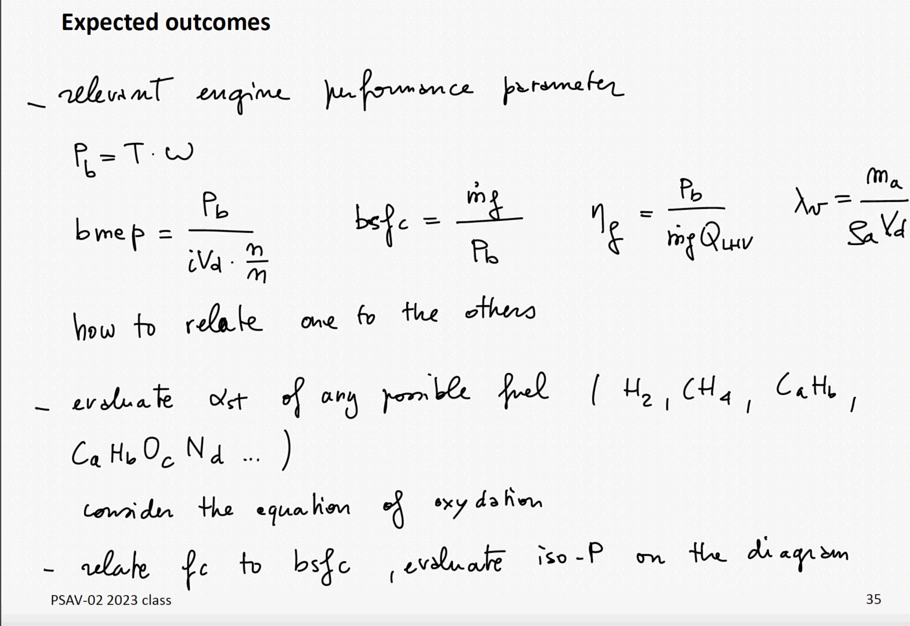 Expected outcomes
- relevant engine performance parameter
P_b = T · ω
bmep = P_b / (iV_d · n/m)   bsfc = ṁ_f / P_b   η_f = P_b / (ṁ_f Q_LHV)   λ_v = m_a / (ρ_a V_d)
how to relate one to the others
- evaluate α_st of any possible fuel ( H_2, CH_4, C_aH_b,
C_a H_b O_c N_d ... )
consider the equation of oxydation
- relate fc to bsfc, evaluate iso-P on the diagram
PSAV-02 2023 class   35